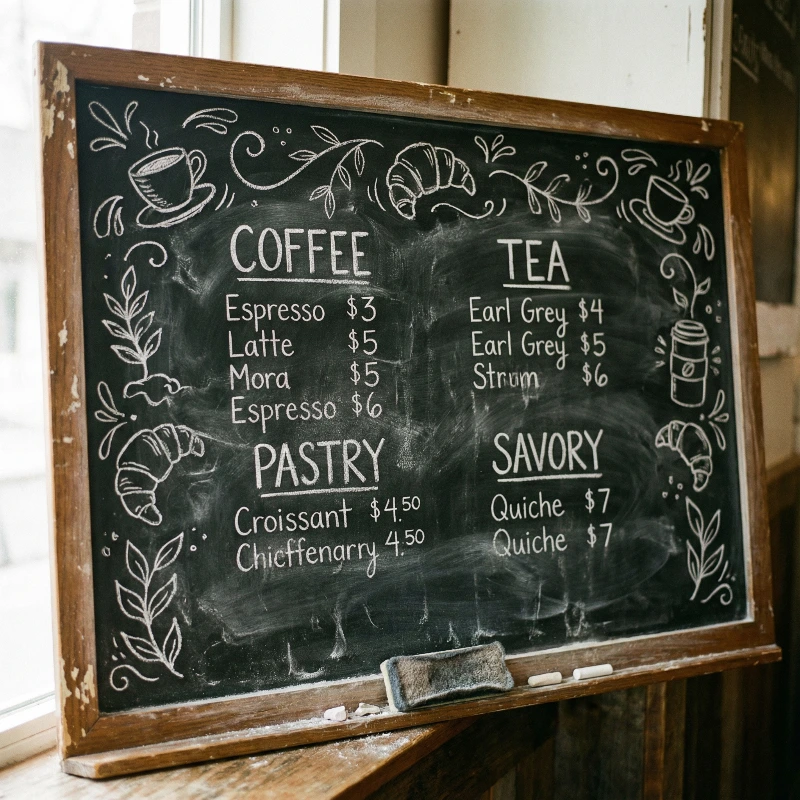 COFFEE
Espresso $3
Latte $5
Mora $5
Espresso $6
TEA
Earl Grey $4
Earl Grey $5
Strum $6
PASTRY
Croissant $4.50
Chicffenarry 4.50
SAVORY
Quiche $7
Quiche $7